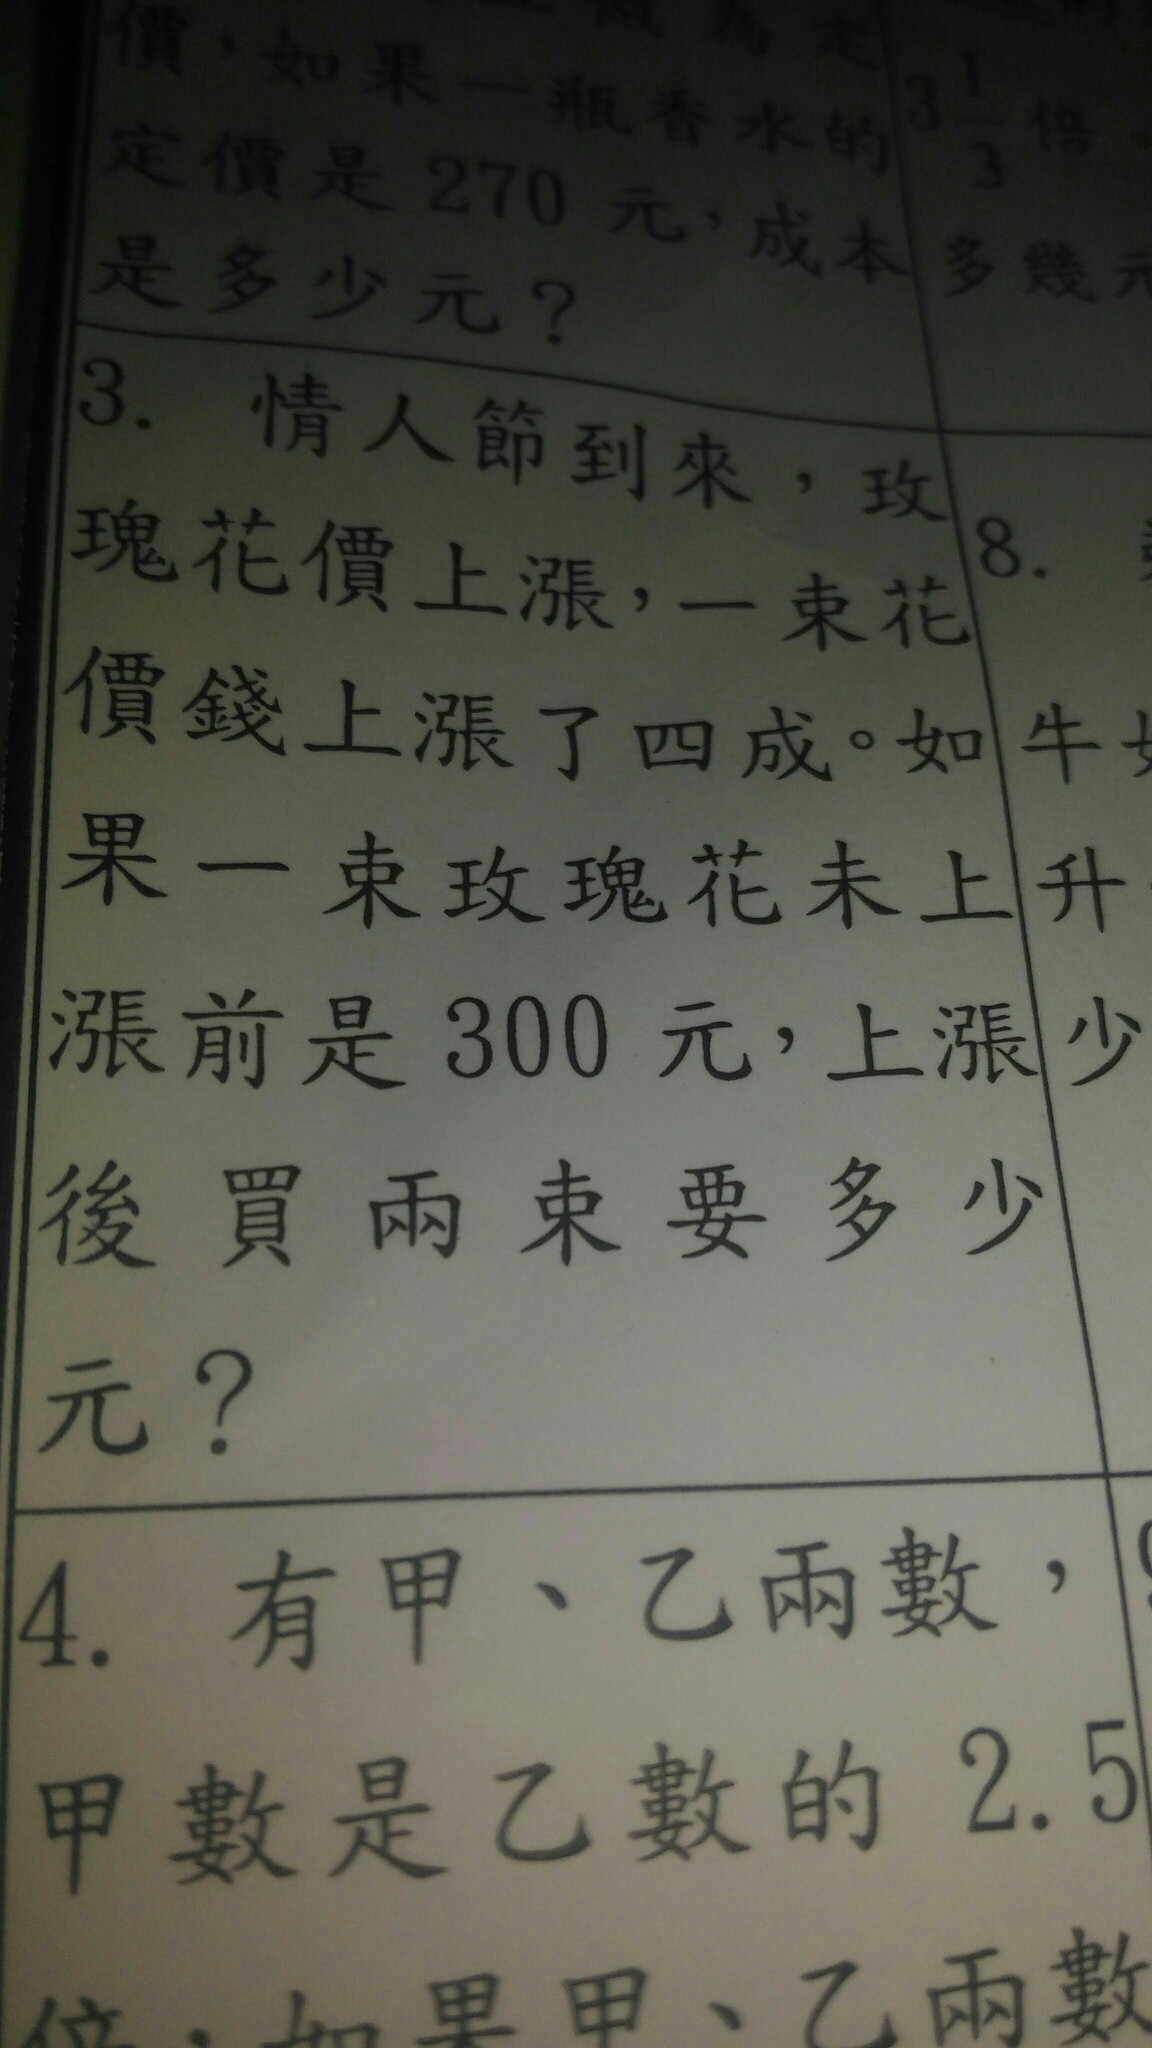 做為定
價，如果一瓶香水的
定價是 270 元，成本
是多少元？
3. 情人節到來，玫
瑰花價上漲，一束花
價錢上漲了四成。如
果一束玫瑰花未上
漲前是 300 元，上漲
後買兩束要多少
元？
4. 有甲、乙兩數，
甲數是乙數的 2.5
倍，如果甲、乙兩數
3 1/3 倍，
多幾元
8.
牛
升
少